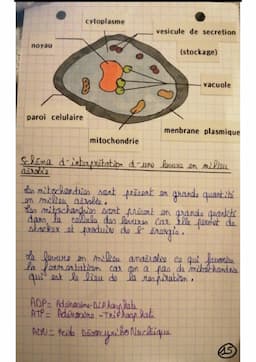 cytoplasme
vesicule de secretion
noyau
(stockage)
vacuole
paroi celulaire
menbrane plasmique
mitochondrie
Schéma d-interprétation d-une levure en milieu
aérobie
Les mitochondries sont présent en grande quantité
en milieu aérobie.
Les mitochondries sont présent en grande quantité
dans la cellule des levures car elle permet de
stocker et produire de l'énergie.
La levure en milieu anaérobie ce qui favorise
la fermentation car on a pas de mitochondries
qui est le lieu de la respiration.
ADP= Adénosine-Diphosphate
ATP= Adénosine-Triphosphate
ADN= Acide Désoxyribo Nucléique
15